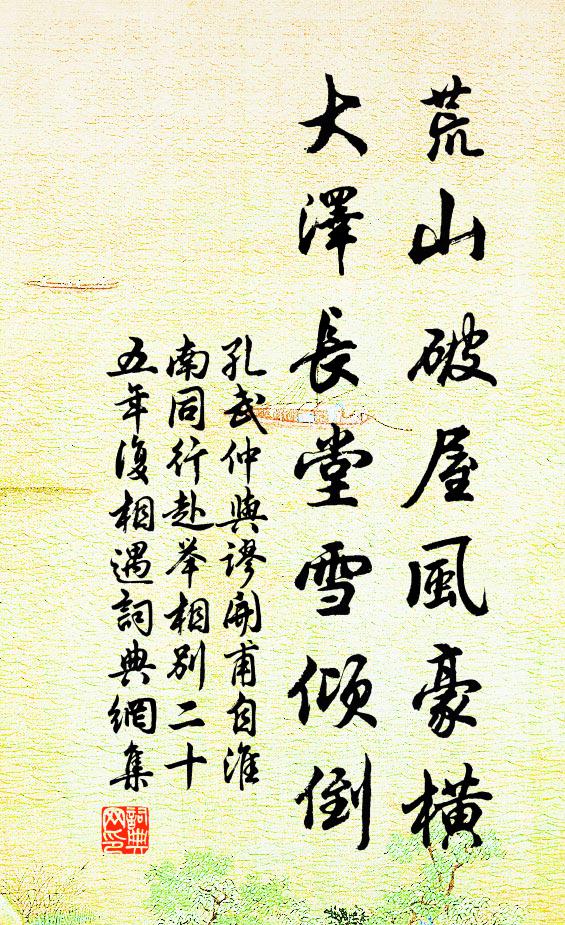 荒山破屋風豪橫
大澤長堂雪傾倒
孔武仲與謬開甫自淮
南同行赴举相別二十
五年復相遇詞典網集
詞典
网印